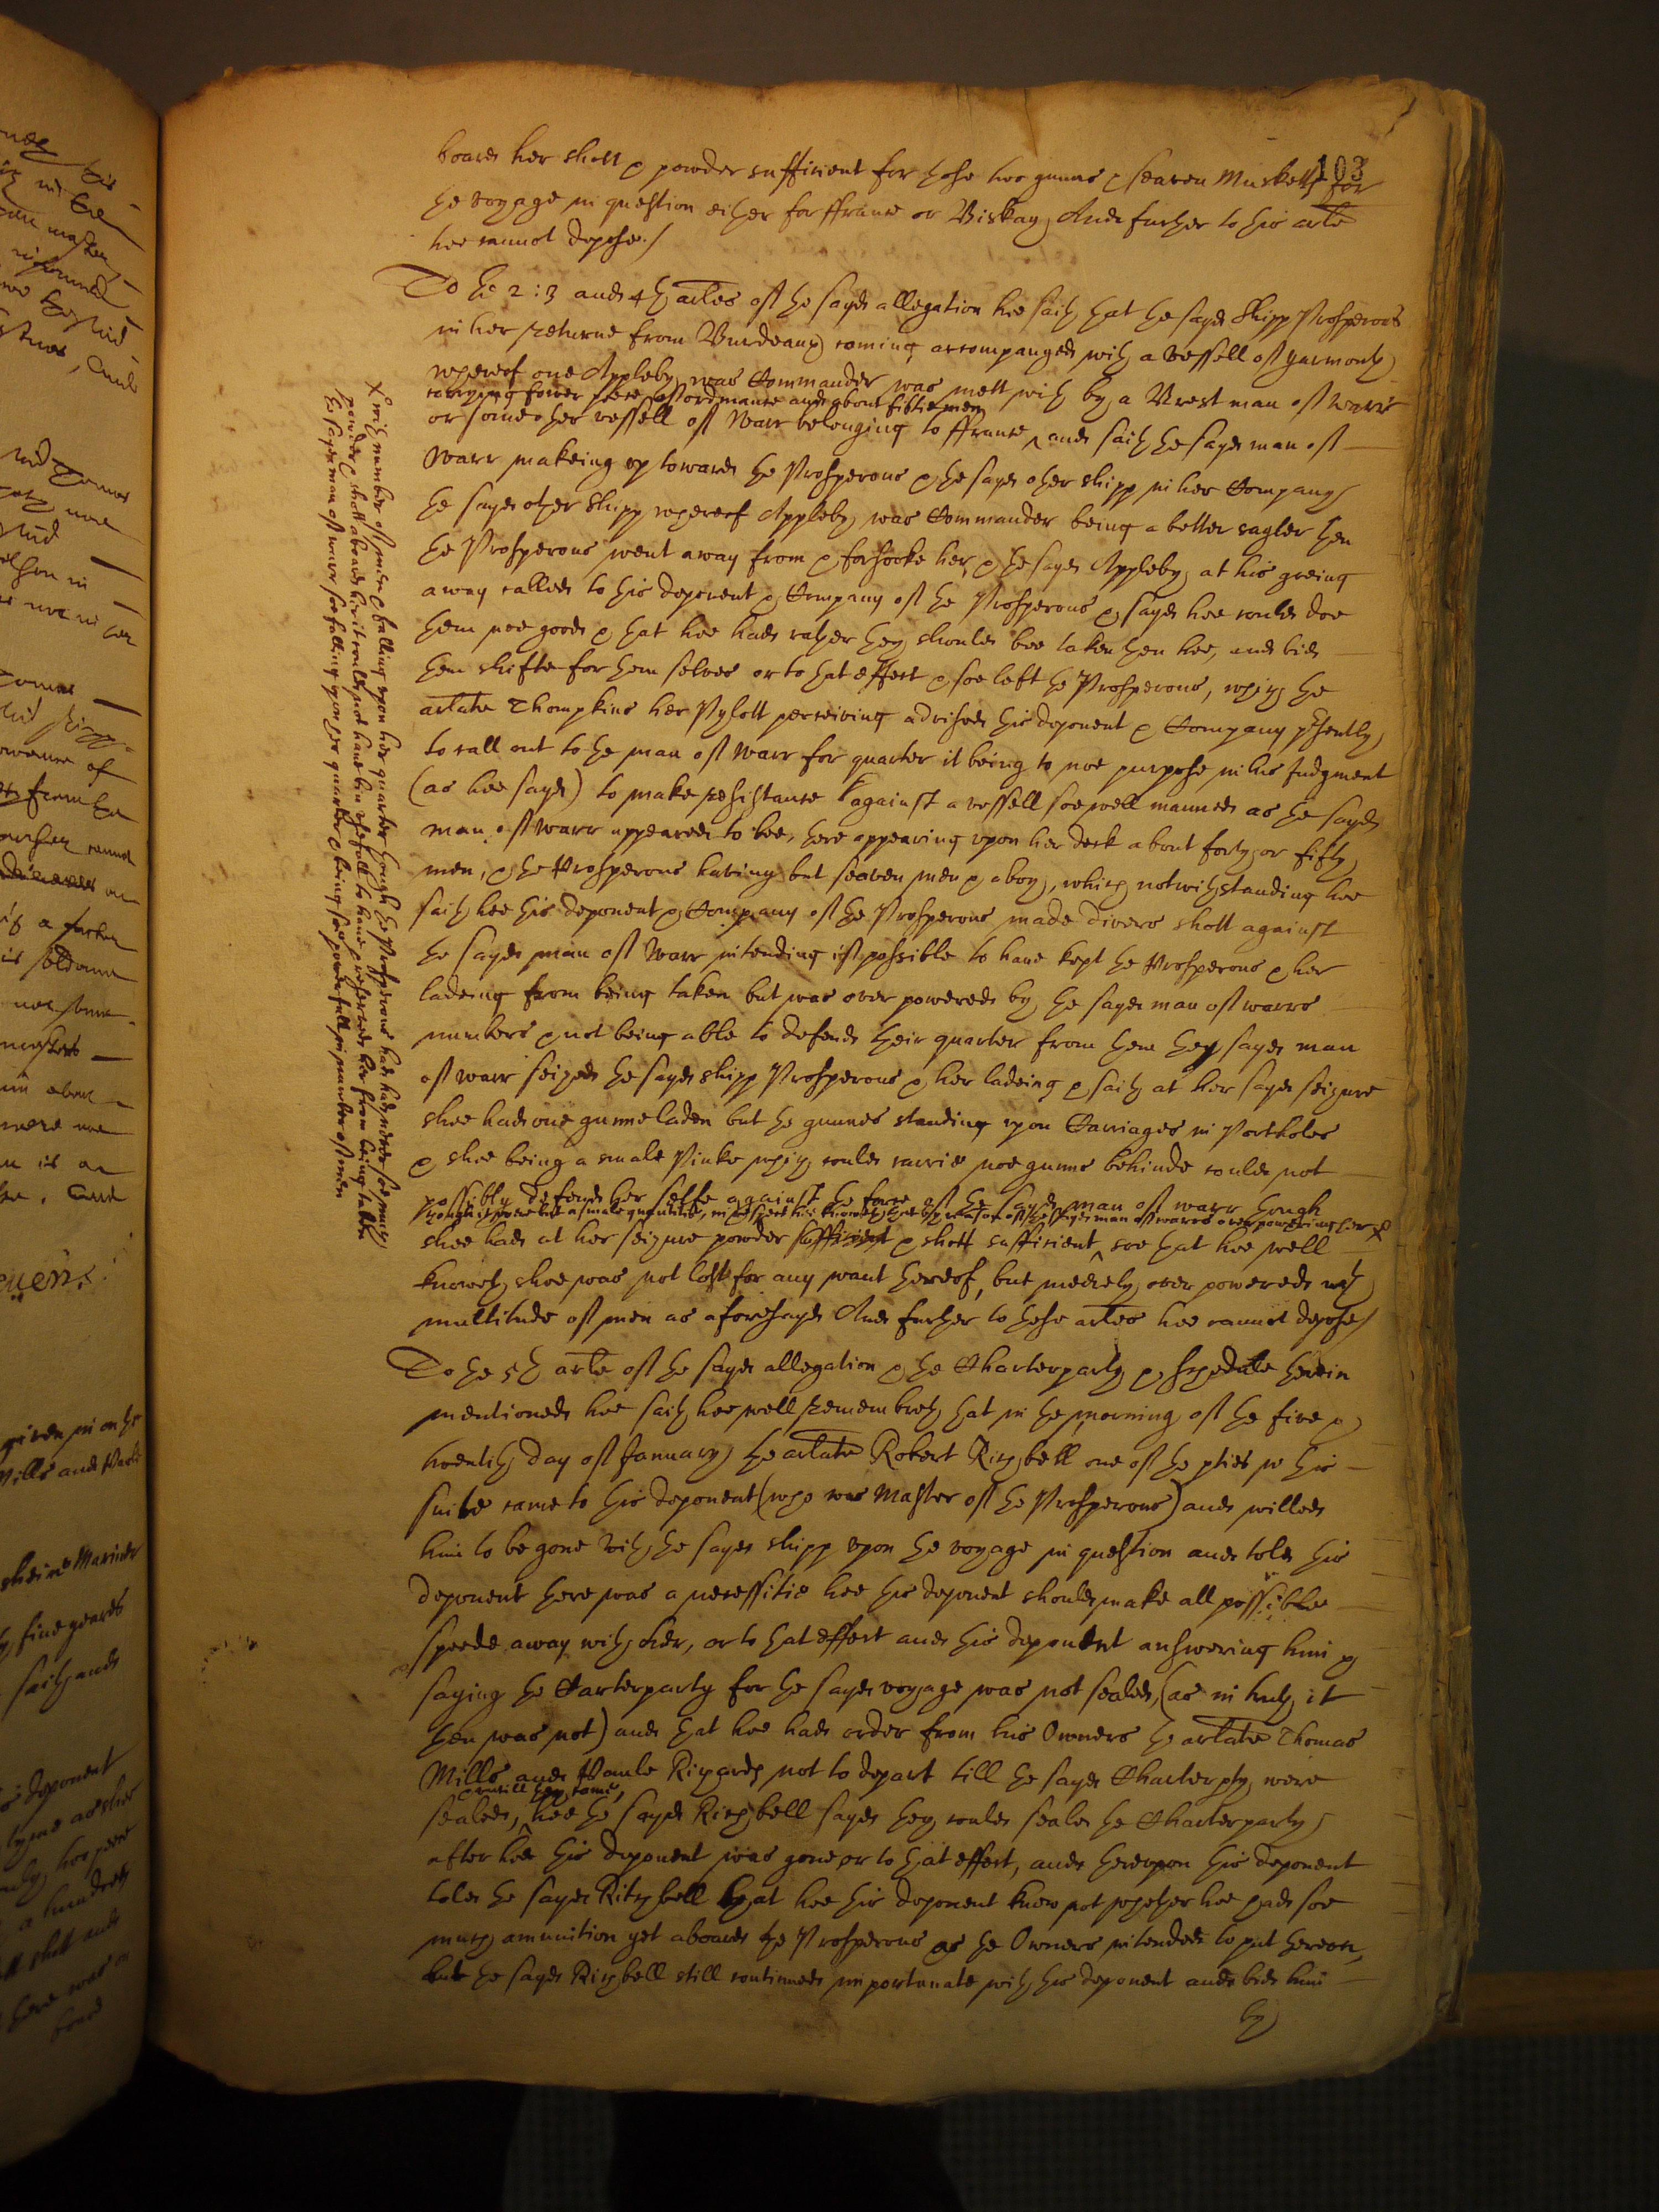 103
board her shott & powder sufficient for those two gunns & seaven Musketts for
the voyage in question either for ffrance or Biskay, And further to this arle
hee cannot depose./
To the 2: 3 and 4th arles of the sayd allegation hee saith that the sayd Shipp Prosperous
in her returne from Burdeaux coming accompanyed with a vessell of yarmouth
whereof one Appleby was Commander was mett with by a Brest man of warr
carrying fower peeces of ordnance and about fiftie men
or some other vessell of Warr belonging to ffrance ^ and saith the sayd man of
Warr makeing up towards the Prosperous & the sayd other shipp in her Company
the sayd other Shipp whereof Appleby was Commander being a better sayler then
the Prosperous went away from & forsooke her, & the sayd Appleby at his goeing
away called to this deponent & Company of the Prosperous & sayd hee could doe
them noe good & that hee had rather they should bee taken then hee, and bid
them shifte for them selves or to that effect & soe left the Prosperous, which the
arlate Thompkins her Pylott perceiving advised this deponent & Company psently
to call out to the man of Warr for quarter it being to noe purpose in his Judgment
(as hee sayd) to make resistance against a vessell soe well manned as the sayd
man of Warr appeared to bee, there appearing upon her deck about forty or fifty
men, & the Prosperous having but seaven men & a boy, which notwithstanding hee
saith hee this deponent & Company of the Prosperous made divers shott against
the sayd man of Warr intending if possible to have kept the Prosperous & her
ladeing from being taken but was over powered by the sayd man of warrs
numbers & not being able to defend their quarter from them they sayd man
of warr seized the sayd shipp Prosperous & her ladeing & saith at her sayd seizure
shee had one gunne laden but the gunnes standing upon Carriages in Portholes
& shee being a smale Pinke which could carrie noe gunns behinde could not
possibly defend her selfe against the force of the sayd man of warr though
shee had at her seizure powder sufficient & shott sufficient ^ soe that hee well
knoweth shee was not lost for any want thereof, but meerely over powered with
multitude of men as aforesayd And further to these arles hee cannot depose/
To the 5th arle of the sayd allegation & the Charterparty & schedule therein
mentioned hee saith hee well remembreth that in the morning of the five &
twentith day of January the arlate Robert Richbell one of the pties in this
suite came to this deponent (who was Master of the Prosperous) and willed
him to be gone with the sayd shipp upon the voyage in question and told this
deponent there was a necessitie hee this deponent should make all possible
speede away with her, or to that effect and this deponent answering him &
saying the Carterparty for the sayd voyage was not sealed, (as in truth it
then was not) and that hee had order from his Owners the arlate Thomas
Mills and Paule Richards not to depart till the sayd Charterpty were
& until they came,
sealed, ^ hee the sayd Richbell sayd they could seale the Charterparty
after hee this deponent was gone or to that effect, and thereupon this deponent
told the sayd Richbell that hee this deponent knew not whether hee had soe
much amunition yet aboard the Prosperous as the Owners intended to put thereon,
but the sayd Richbell still continued importunate with this deponent and bid him
by
X with number of men & falling upon her quarter though the Prosperous had had never soe much
powder & shott aboard her it could not have bin usefull to have preserved her from being taken
the sayd man of warr soe falling upon her quarter & being soe powerfull in number of men